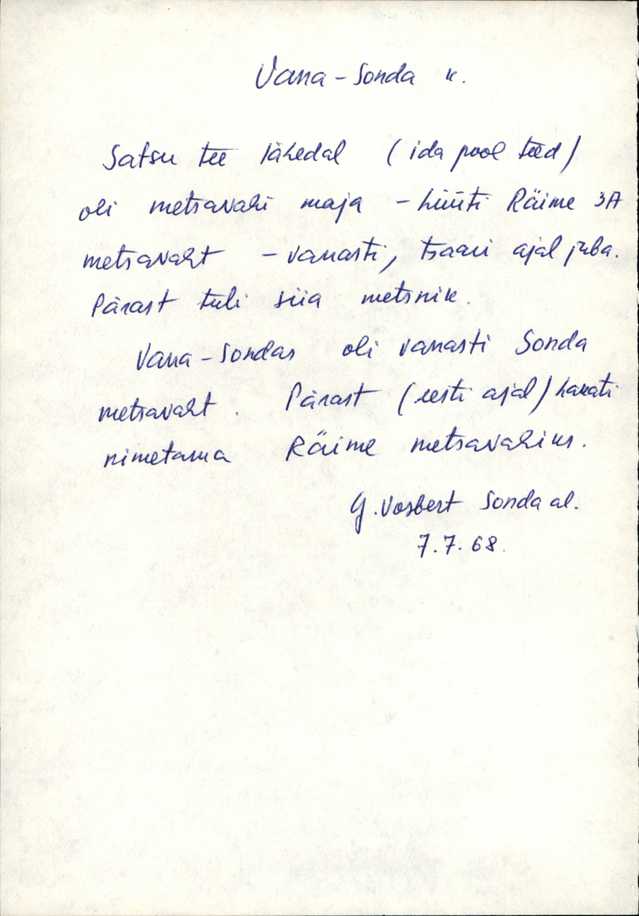 Vana-Sonda k.
Satsu tee lähedal (ida pool teed)
oli metsavahi maja - hüüti Räime 3A
metsavaht - vanasti, tsaari ajal juba.
Pärast tuli siia metsnik.
Vana-Sondas oli vanasti Sonda
metsavaht. Pärast (eesti ajal) hakati
nimetama Räime metsavahiks.
G. Vosbert Sonda al.
7.7.68.